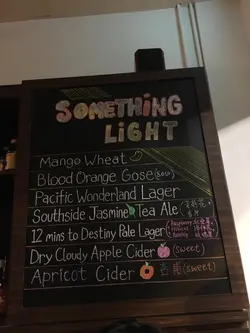 SOMETHING
LIGHT
Mango Wheat
Blood Orange Gose (sour)
Pacific Wonderland Lager
Southside Jasmine Tea Ale
12 mins to Destiny Pale Lager (Raspberry Hibiscus
Dry Cloudy Apple Cider (sweet)
Apricot Cider 杏果 (sweet)